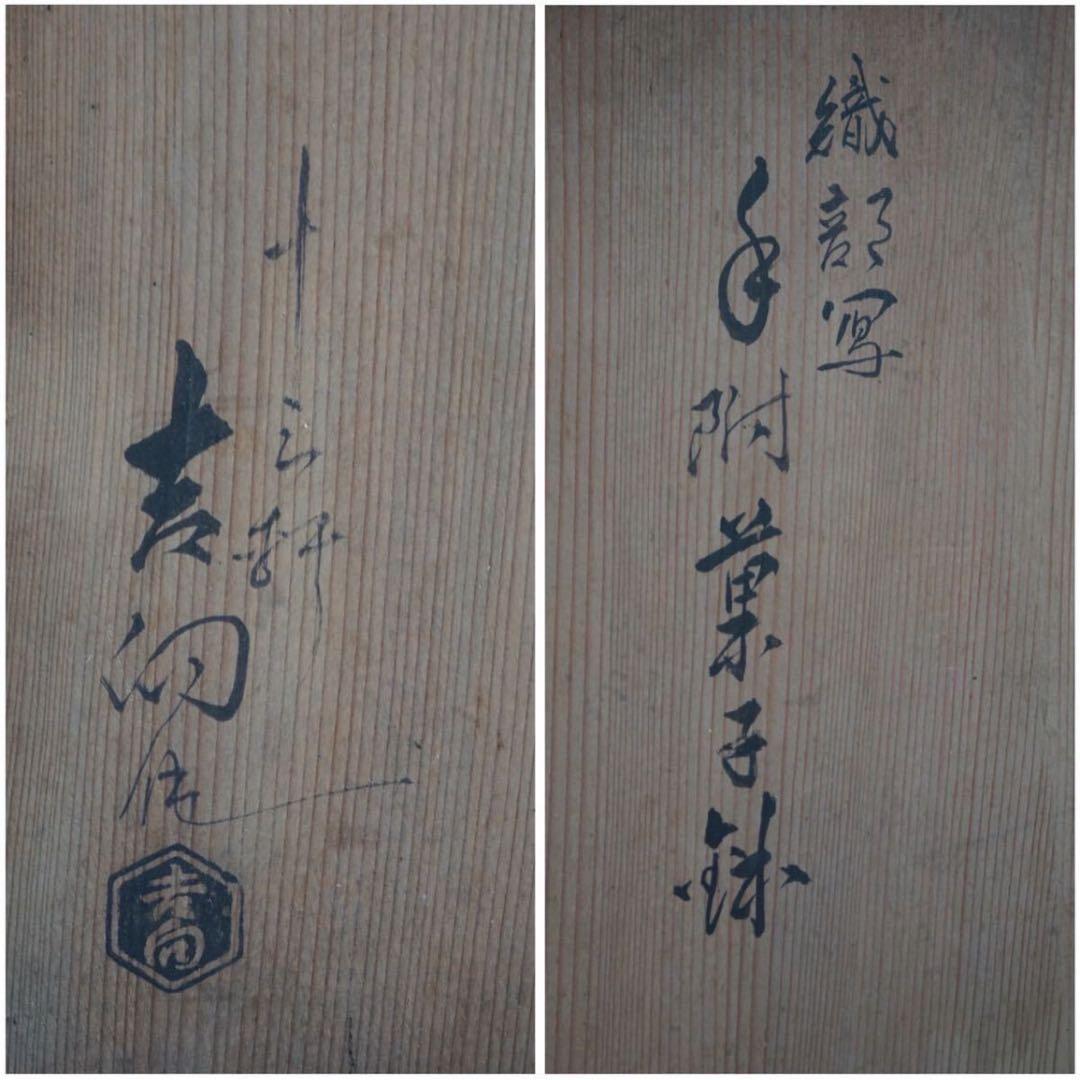 織部写
手附菓子鉢
十三軒
吉向造
吉向